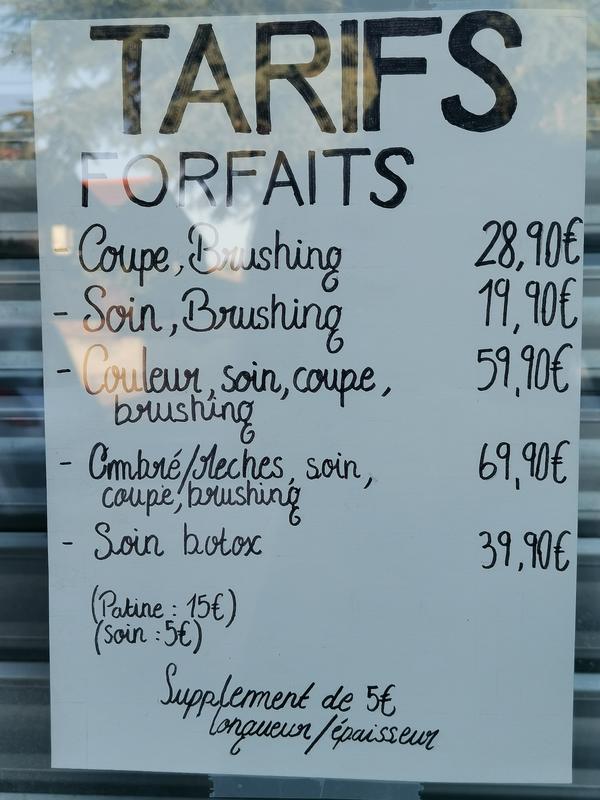 TARIFS
FORFAITS
- Coupe, Brushing 28,90€
- Soin, Brushing 19,90€
- Couleur, soin, coupe, 59,90€
brushing
- Ombré/Meches, soin, 69,90€
coupe, brushing
- Soin botox 39,90€
(Patine : 15€)
(Soin : 5€)
Supplement de 5€
longueur/épaisseur